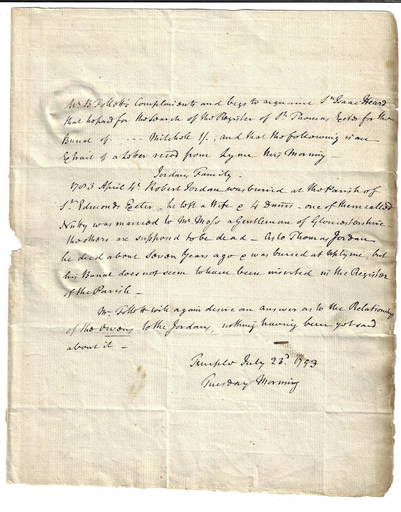 Mr B Follett's Compliments and begs to acquaint Sr Isaac Heard
that he paid for the Search of the Register of St Thomas Exter for the
Burial of . . . . Mitchell 1/, and that the following is an
Extract of a Letter recd from Lyme this Morning
Jordan Family.
1783 April 4th Robert Jordan was buried at the Parish of
St Edmonds Exter, he left a Wife & 4 Daurs - one of them called
was married to Mr Moss a Gentleman of Gloucestershire
the others are supposed to be dead - As to Thomas Jordan
he died about seven Years ago & was buried at Uplyme but
his Burial does not seem to have been inserted in the Register
of the Parish -
Mr Follett will again desire an answer as to the Relationship
of the Owens to the Jordans, nothing having been yet said
about it -
Temple July 23d 1793
Tuesday Morning